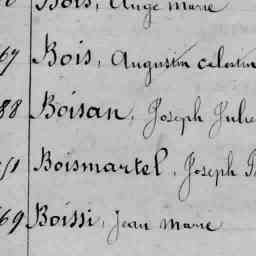 Bois, Ange Marie
67 Bois, Augustin celestin
88 Boisan, Joseph Julie
51 Boismartel, Joseph
69 Boissi, Jean Marie